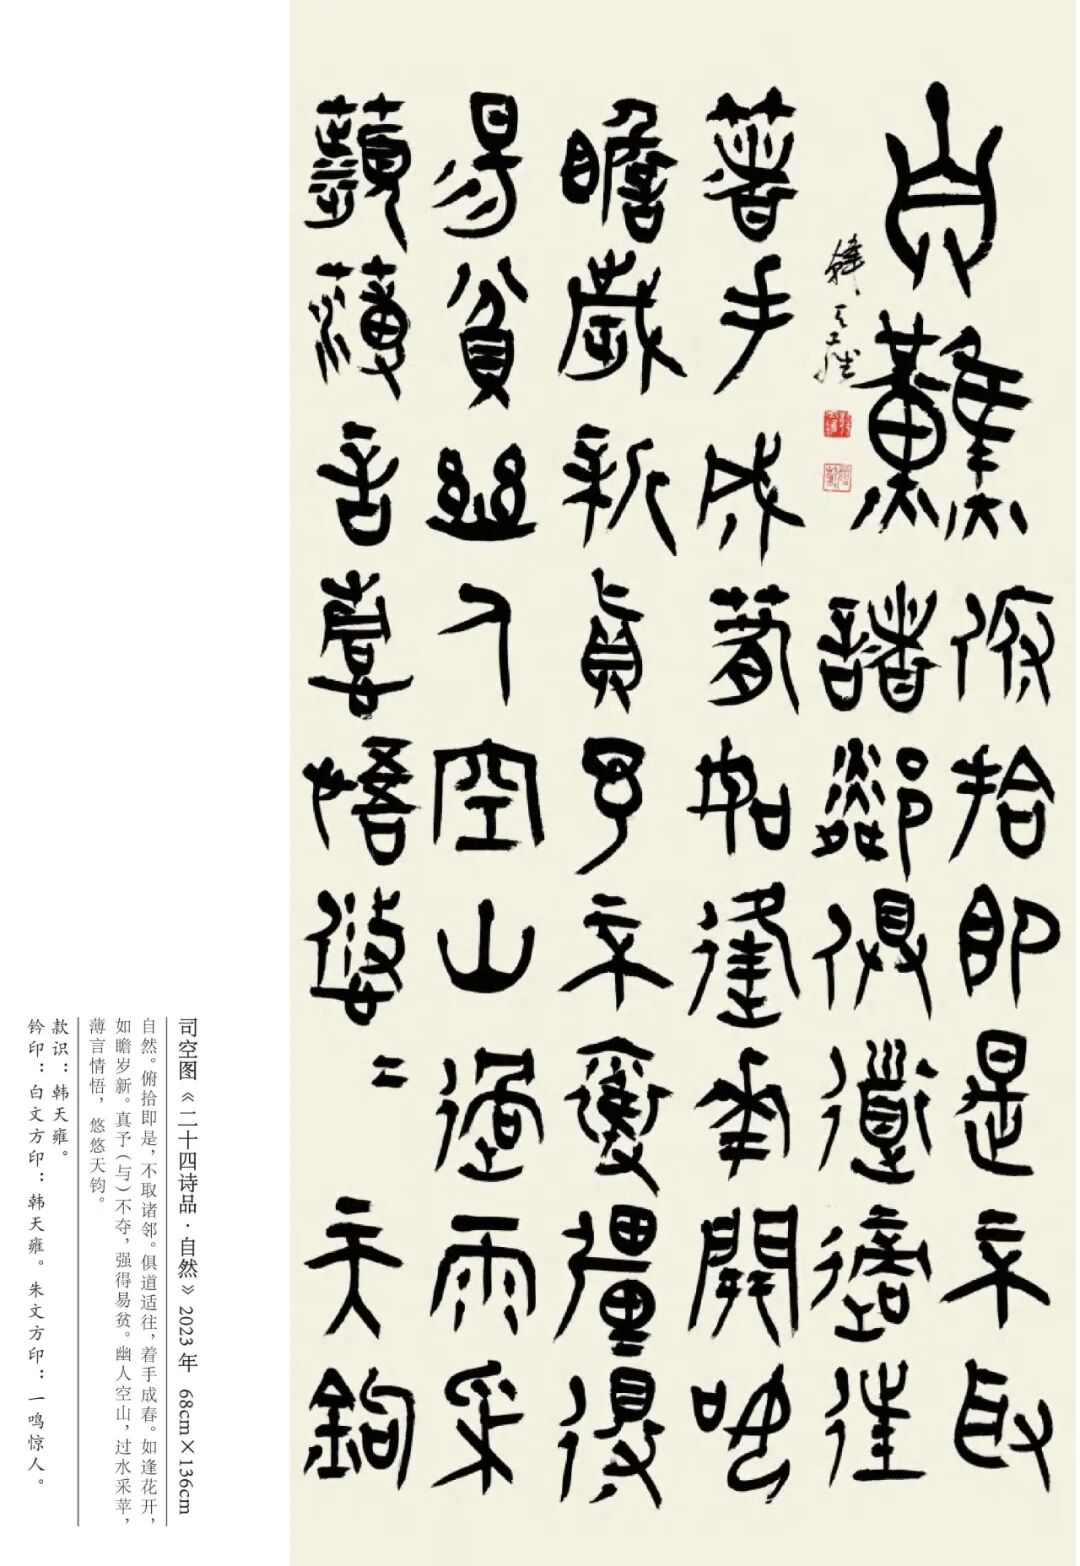 自然
俯拾即是不取
諸鄰俱道適往
著手成春如逢華開如
瞻歲新真予不奪彊得
易貧幽人空山過雨采
蘋薄言喜悟悠二天鈞
韓天雍
司空图《二十四诗品·自然》2023年 68cm×136cm
自然。俯拾即是，不取诸邻。俱道适往，着手成春。如逢花开，
如瞻岁新。真予(与)不夺，强得易贫。幽人空山，过水采苹，
薄言情悟，悠悠天钧。
款识：韩天雍。
钤印：白文方印：韩天雍。朱文方印：一鸣惊人。